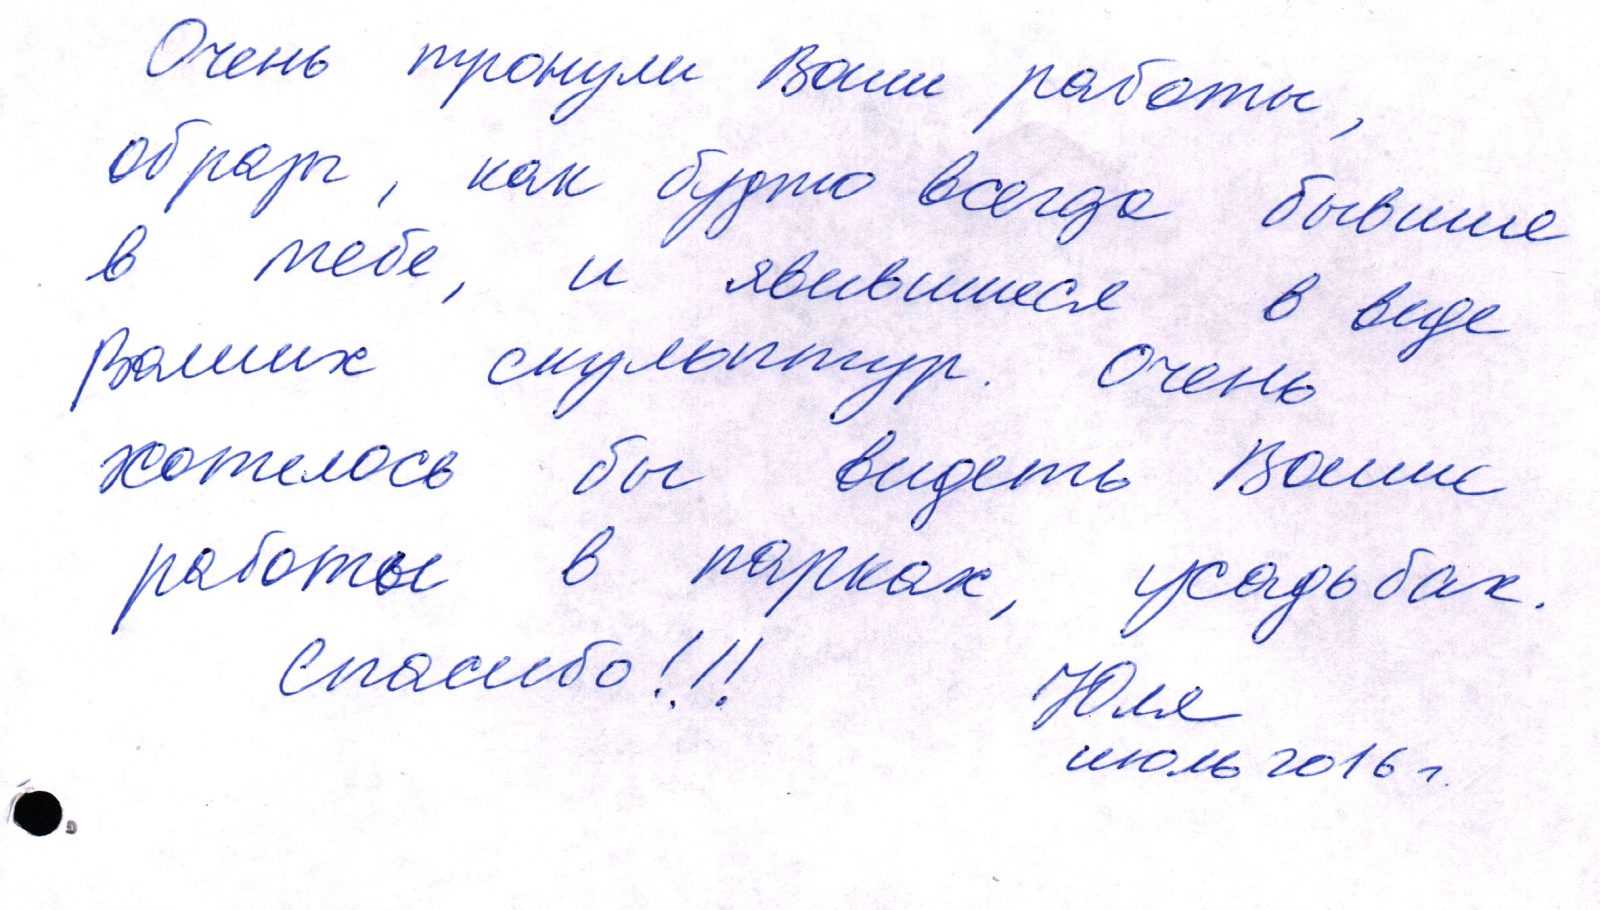 Очень тронули Ваши работы,
образы, как будто всегда бывшие
в тебе, и явившиеся в виде
Ваших скульптур. Очень
хотелось бы видеть Ваши
работы в парках, усадьбах.
Спасибо!!!
Юля
июль 2016 г.